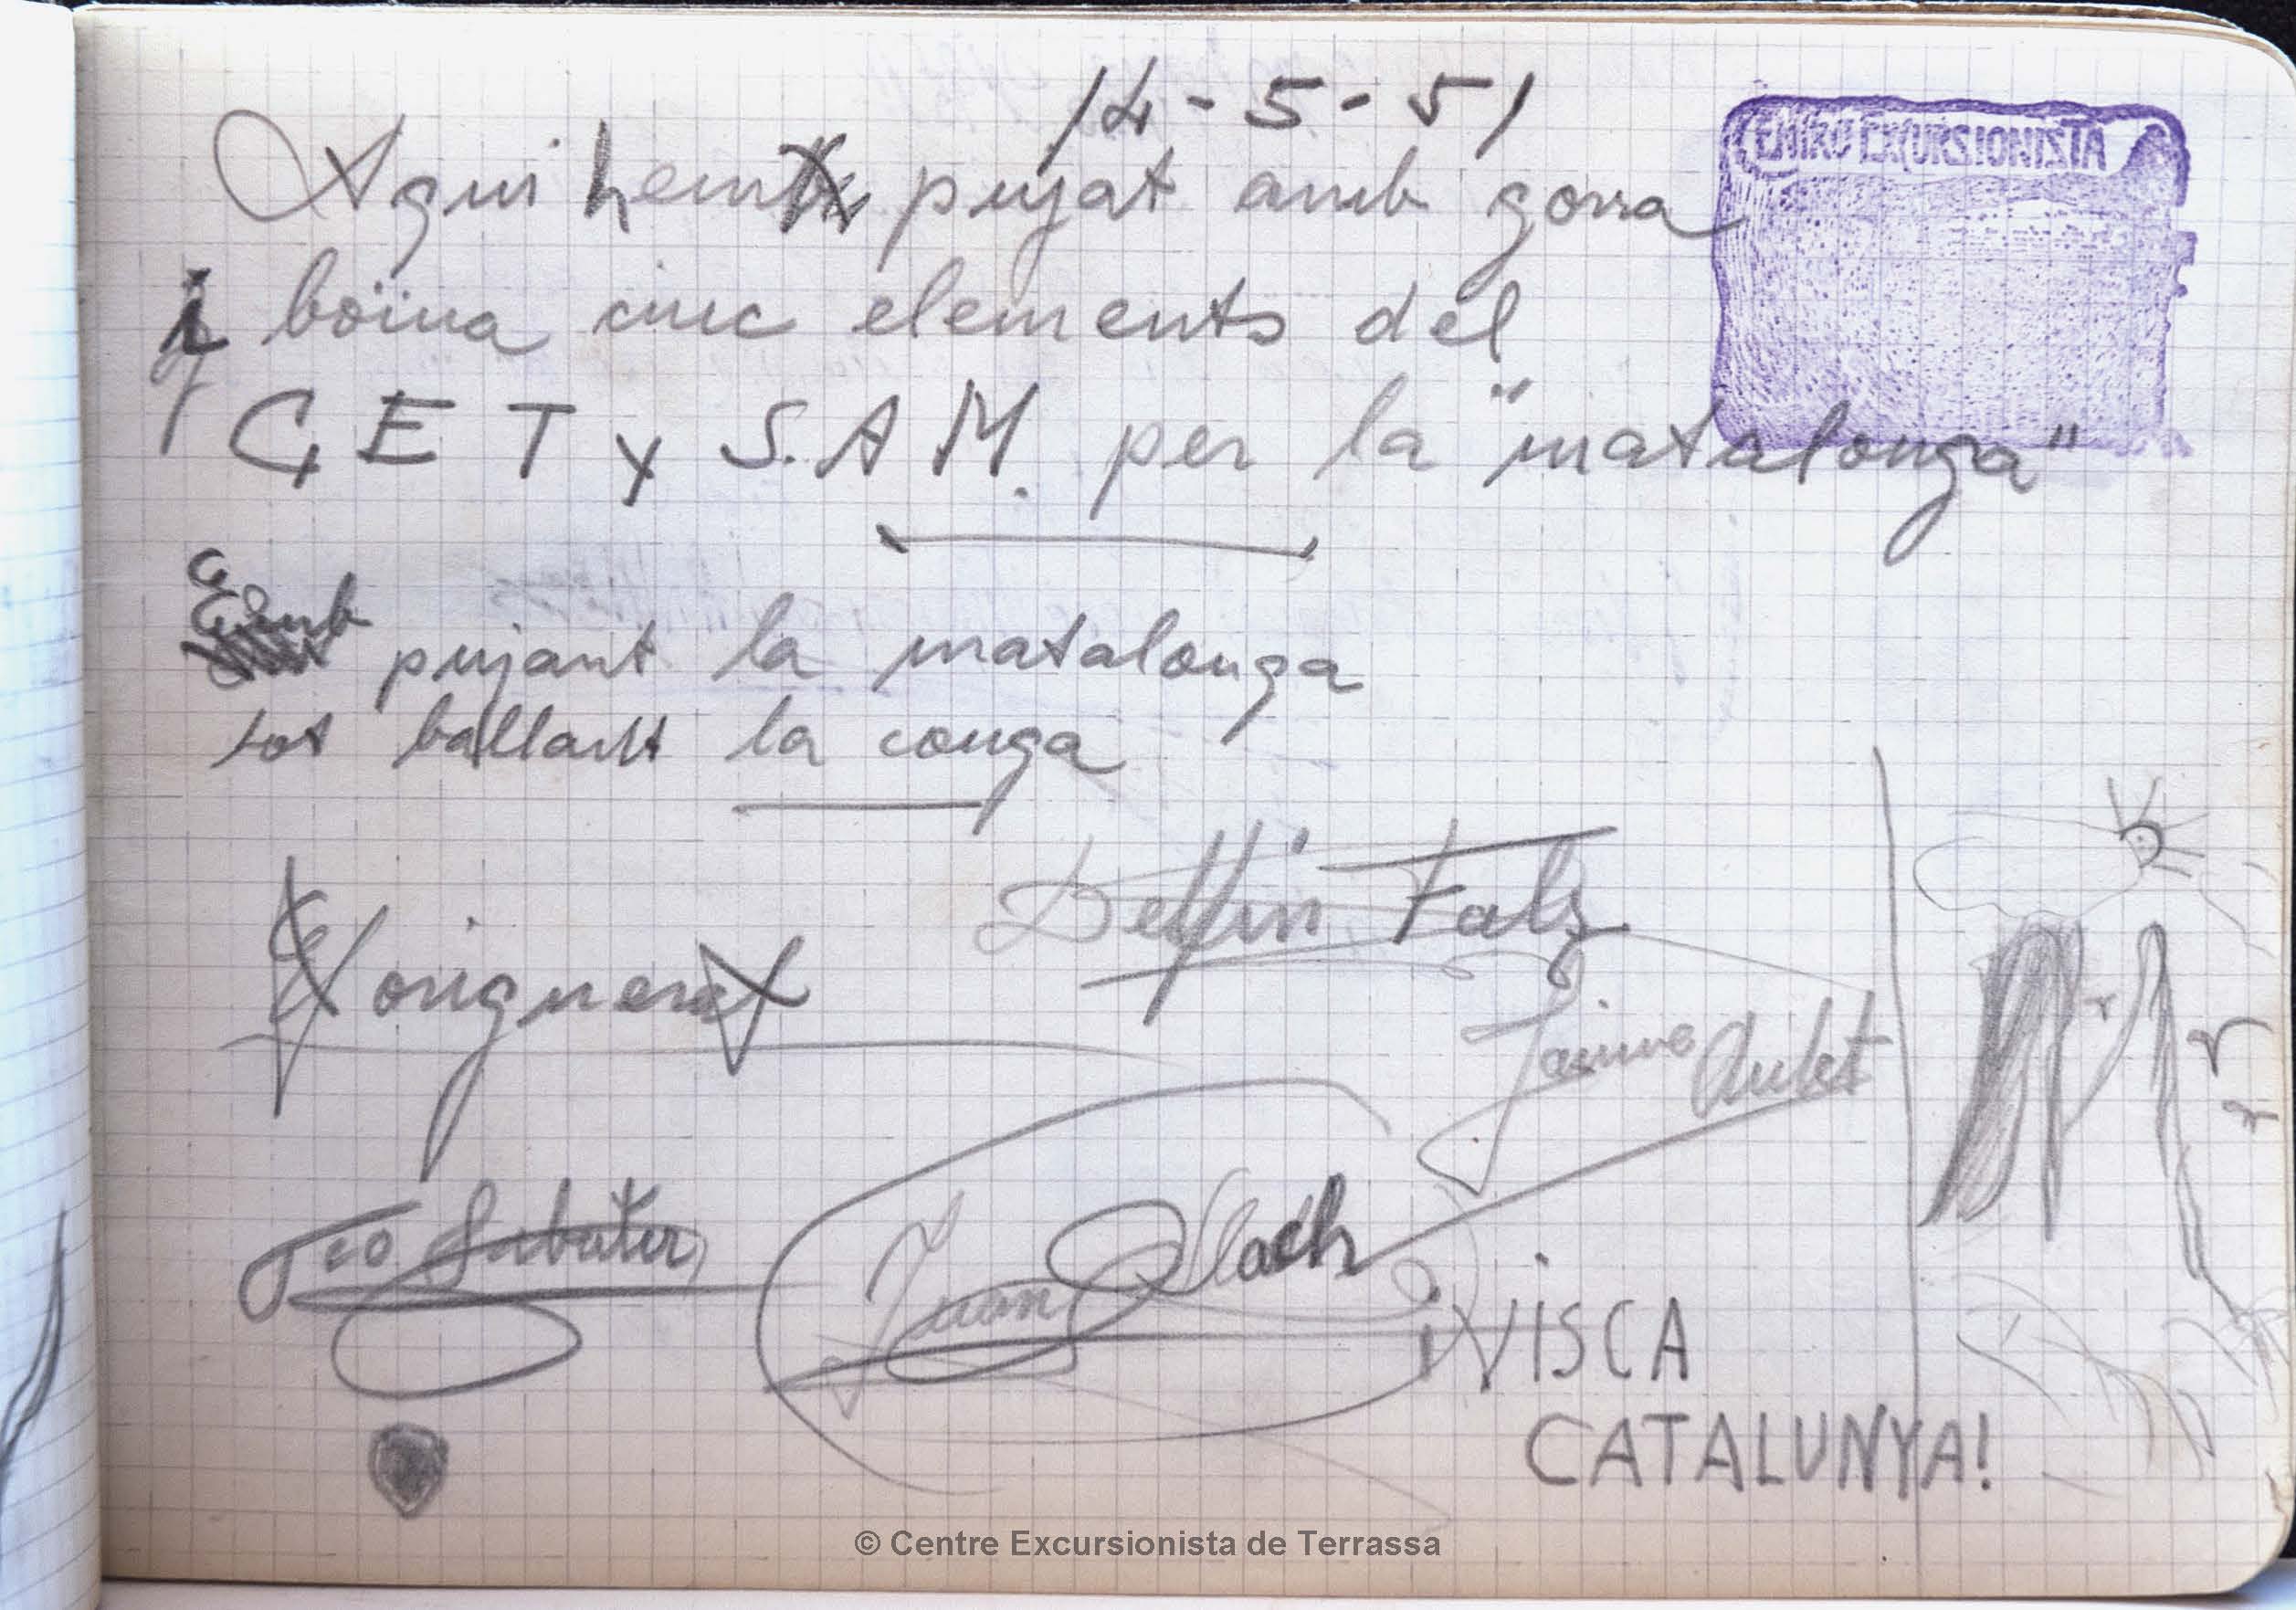 14-5-51
CENTRO EXCURSIONISTA
Aqui hem pujat amb gorra
i boina cinc elements del
C E T y S.A.M. per la "matalonga"
pujant la matalonga
tot ballant la conga
Delfin Fals
Jaime Aulet
Teo Sabater
Juan Llach
¡VISCA
CATALUNYA!
© Centre Excursionista de Terrassa